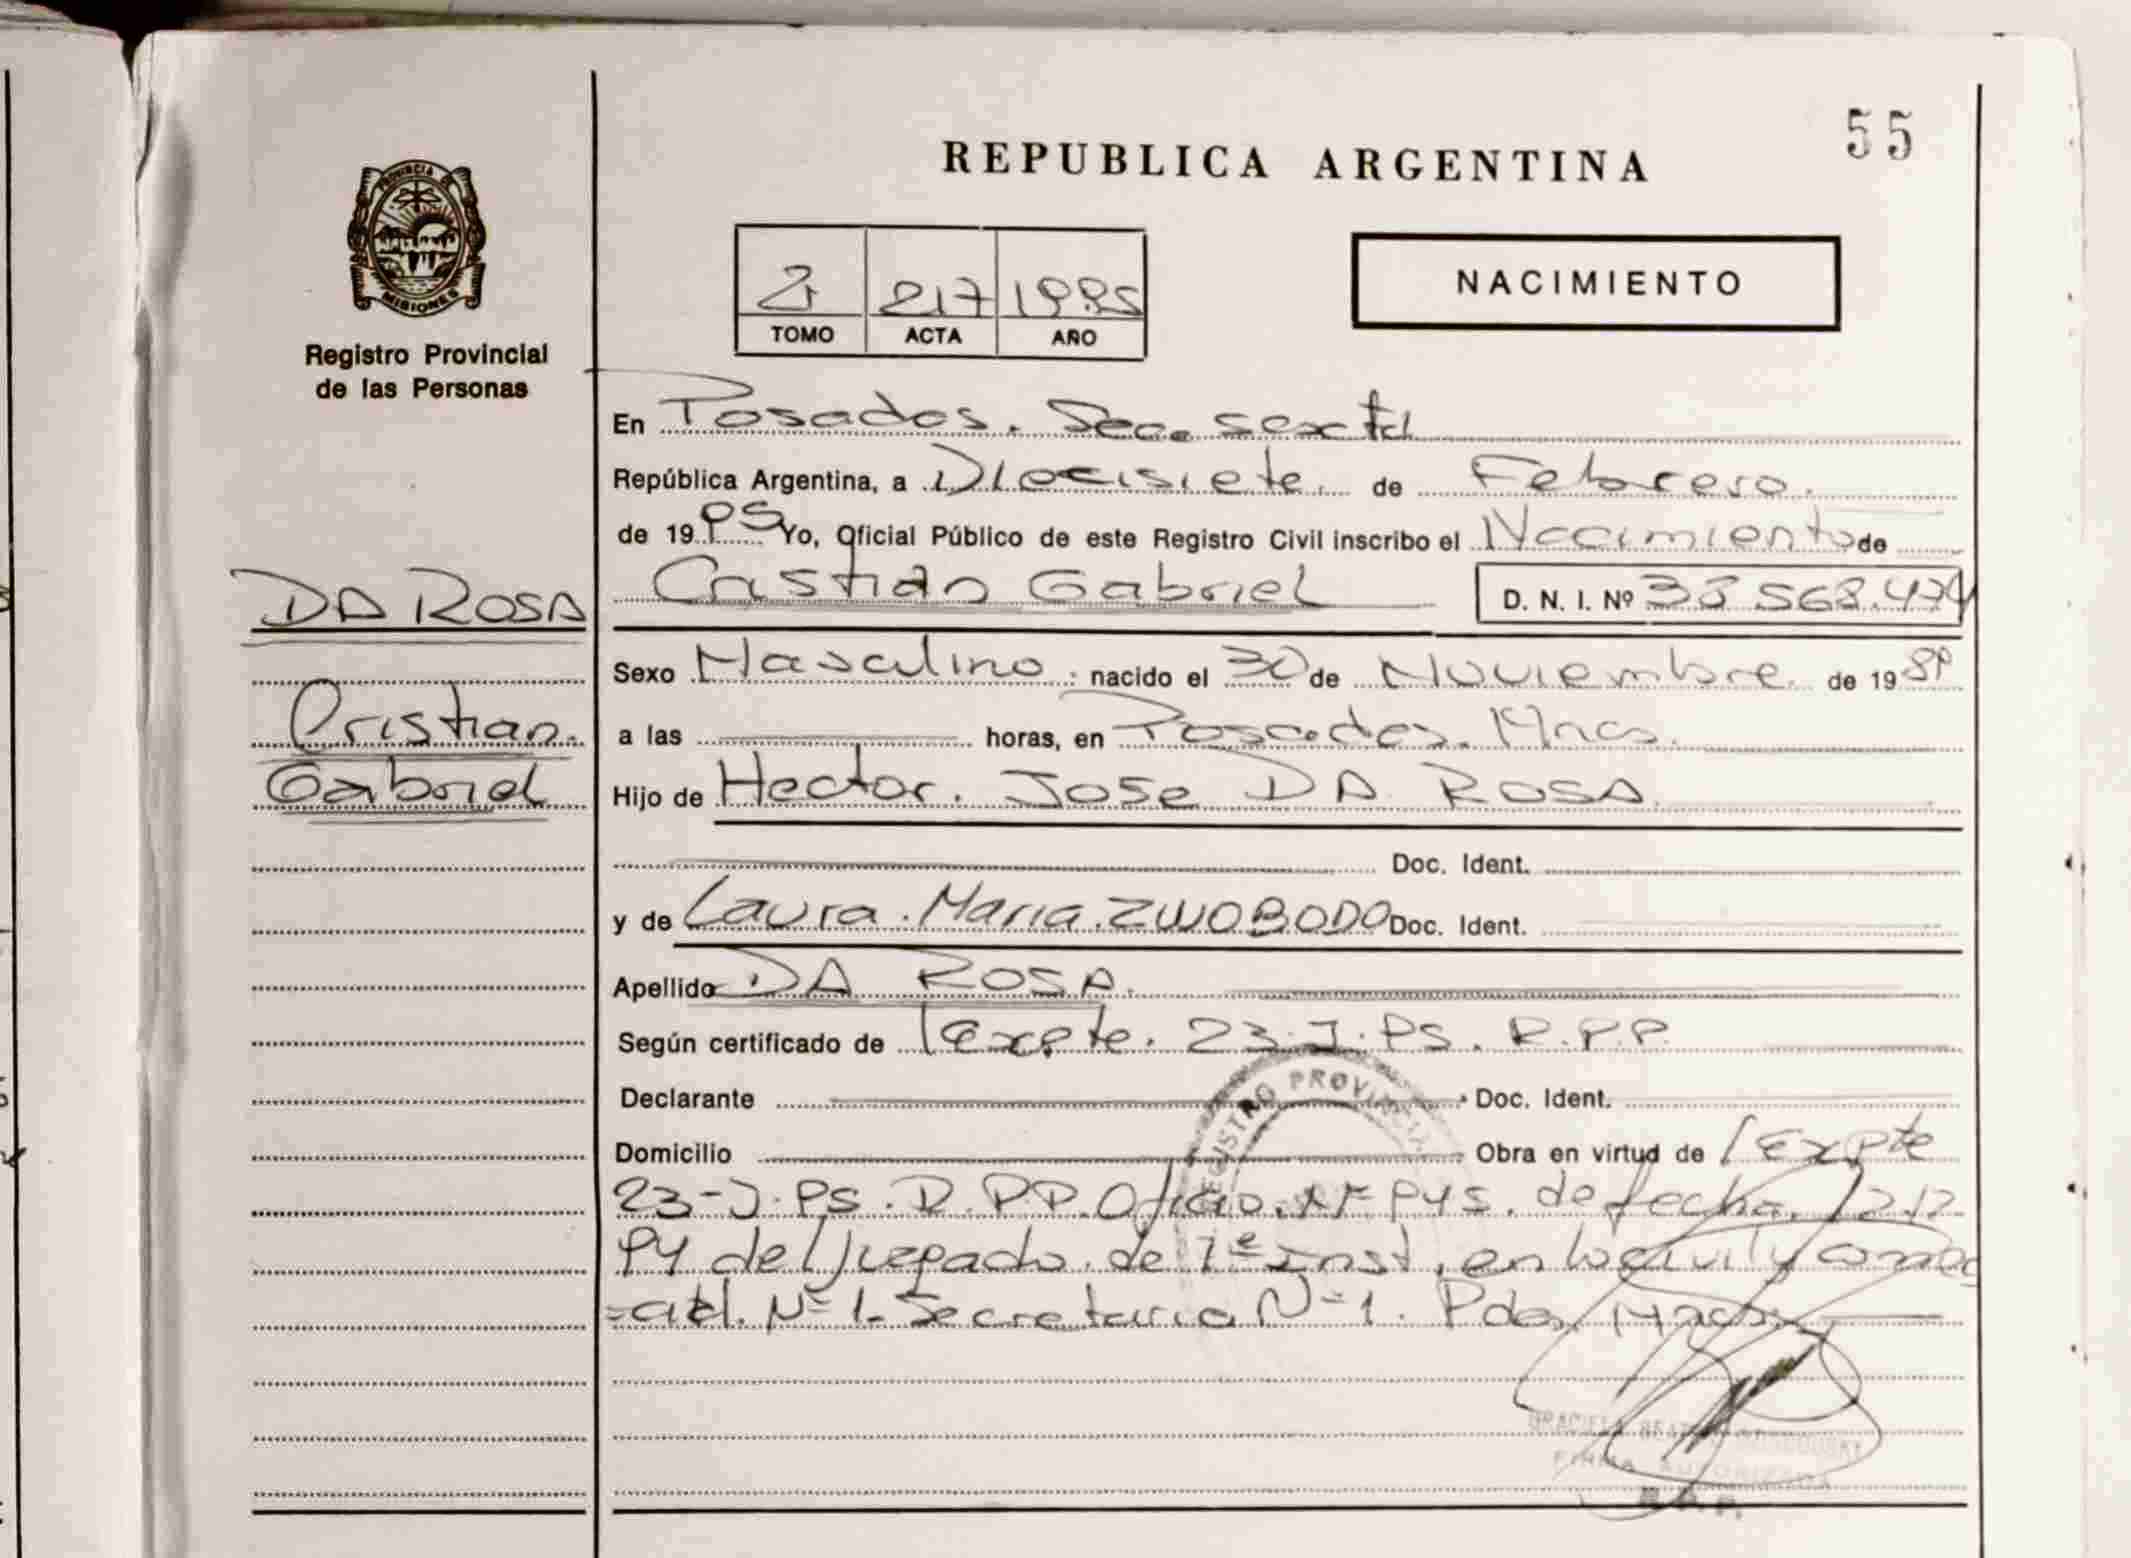 55
REPUBLICA ARGENTINA
PROVINCIA DE
MISIONES
Registro Provincial
de las Personas
NACIMIENTO
2 217 1995
TOMO ACTA AÑO
En Posadas. Sec. sexta
República Argentina, a Diecisiete. de Febrero.
de 1995 Yo, Oficial Público de este Registro Civil inscribo el Nacimiento de
DA ROSA
Cristian Gabriel D. N. I. Nº
Sexo Masculino. nacido el 30 de Noviembre. de 19
Cristian.
a las horas, en Posadas. Mnes.
Gabriel
Hijo de Hector. Jose DA ROSA
Doc. Ident.
y de Laura. Maria. ZWOBODO Doc. Ident.
Apellido DA ROSA.
Según certificado de Expte. 23. J. PS. R.P.P.
REGISTRO PROVINCIAL
Declarante Doc. Ident.
Domicilio Obra en virtud de Expte
23-J. PS. R.PP. Oficio. de fecha.
94 del Juzgado. de 1ª Inst. en lo civil y
Nº 1. Secretaria Nº 1. Pdas. Mnes.
GRACIELA
FIRMA AUTORIZADA
R. P. P.